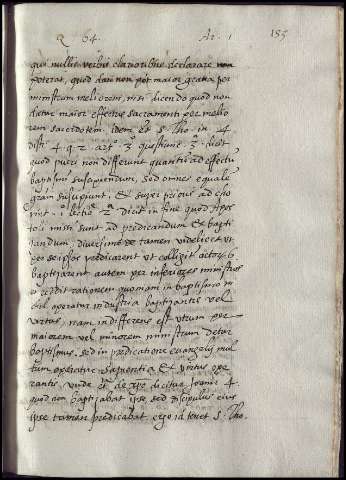 Q 64. Ar. 1 155
quia nullis verbis clarioribus declarare non
poterat, quod dari non pot maior gratia per
ministrum meliorem, nisi dicendo quod non
datur maior effectus sacramenti per melio
rem sacerdotem. idem et s. tho. in 4
dist. 4 q 2. art. 3. questiunc. 3. licet
quod pueri non differunt quantu ad effectu
baptismi suscipiendum, sed omnes equale
gram suscipiunt, Et super priori ad cho
rint. 1 lectio 2 dicit in fine quod Apos
toli missi sunt ad predicandum et bapti
zandum, diversimode tamen videlicet ut
per seipsos predicarent ut colligit acto 6
baptizarent autem per inferiores ministros
et reddit rationem quoniam in baptismo ni
hil operatur industria baptizantis vel
virtus, nam indifferens est utrum per
maiorem vel minorem ministrum detur
baptismus. sed in predicatione evangelij mul
tum operatur sapientia et virtus ope
rantis, unde et de xpo dicitur Joanis 4.
quod non baptizabat ipse sed discipulus eius
ipse tamen predicabat. ergo id tenet s. tho.